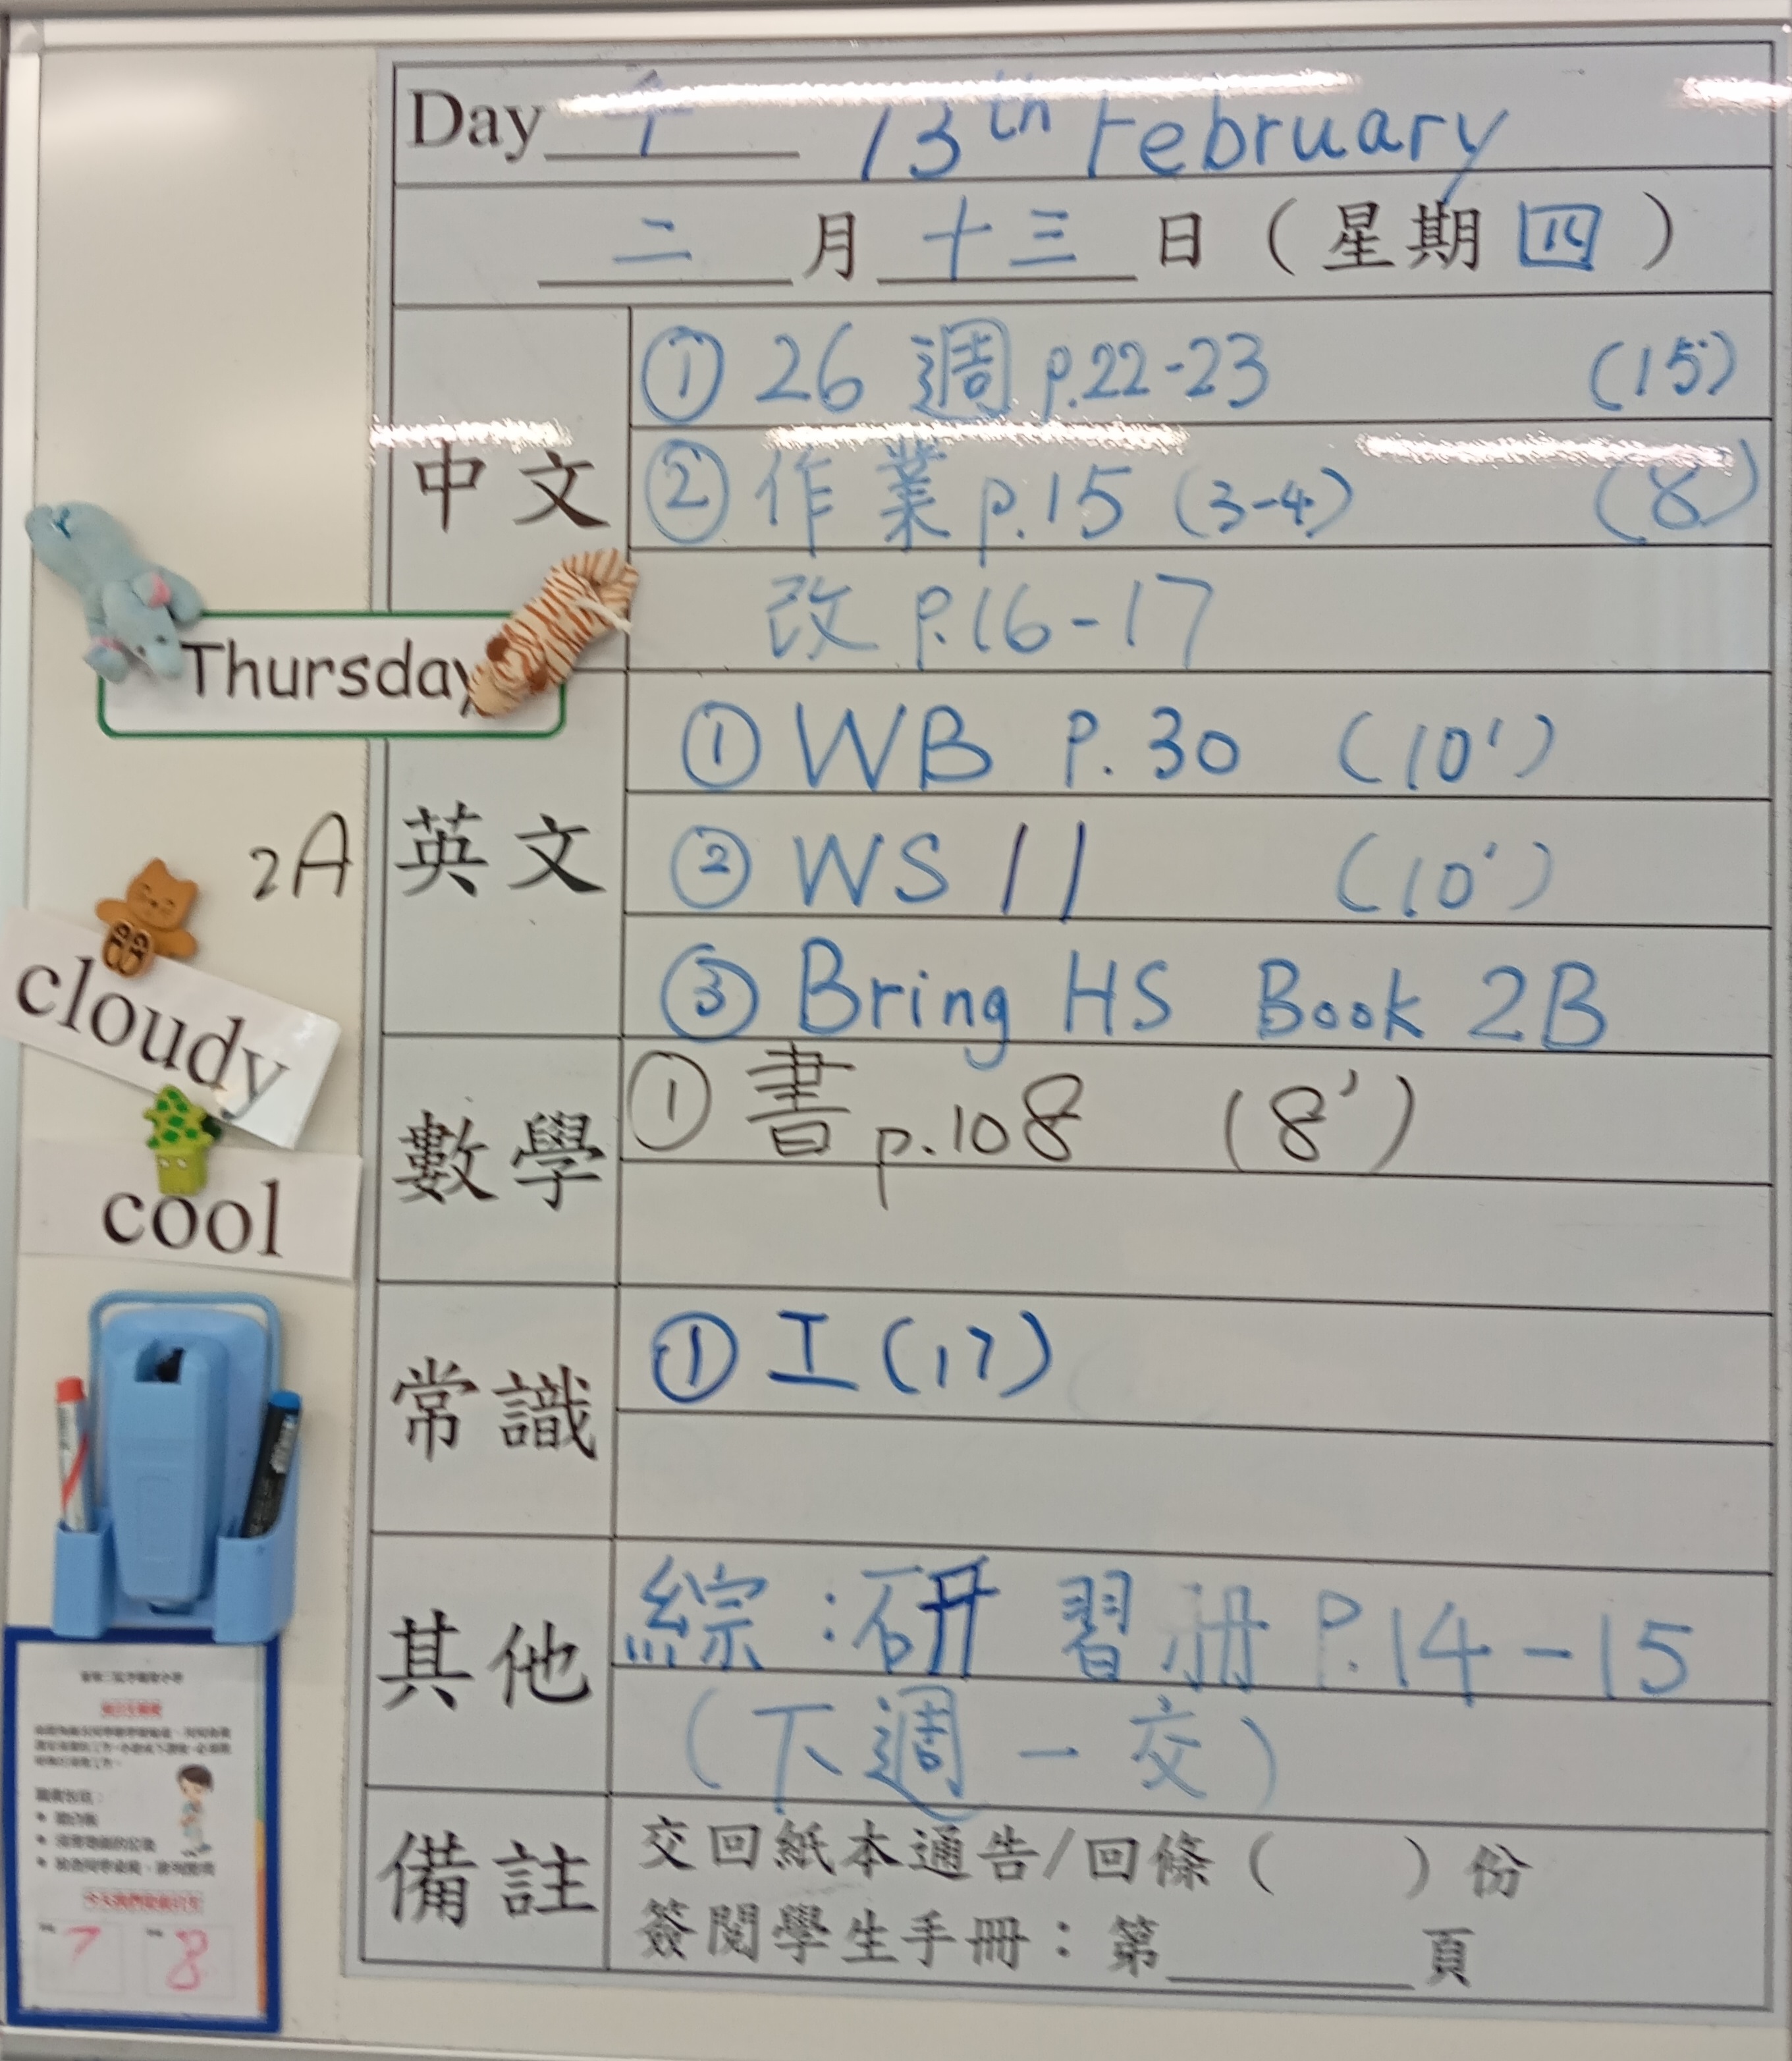 Day 13th February
二月十三日（星期四）
中文
① 26 週 p.22-23 (15)
② 作業 p.15 (3-4) (8)
改 p.16-17
Thursday
英文
① WB P. 30 (10')
② WS 11 (10')
③ Bring HS Book 2B
2A
cloudy
cool
數學
① 書 p.108 (8')
常識
① 工(17)
其他
綜:研習册 P.14-15
(下週一交)
備註
交回紙本通告/回條（ ）份
簽閱學生手冊：第______頁
7 8